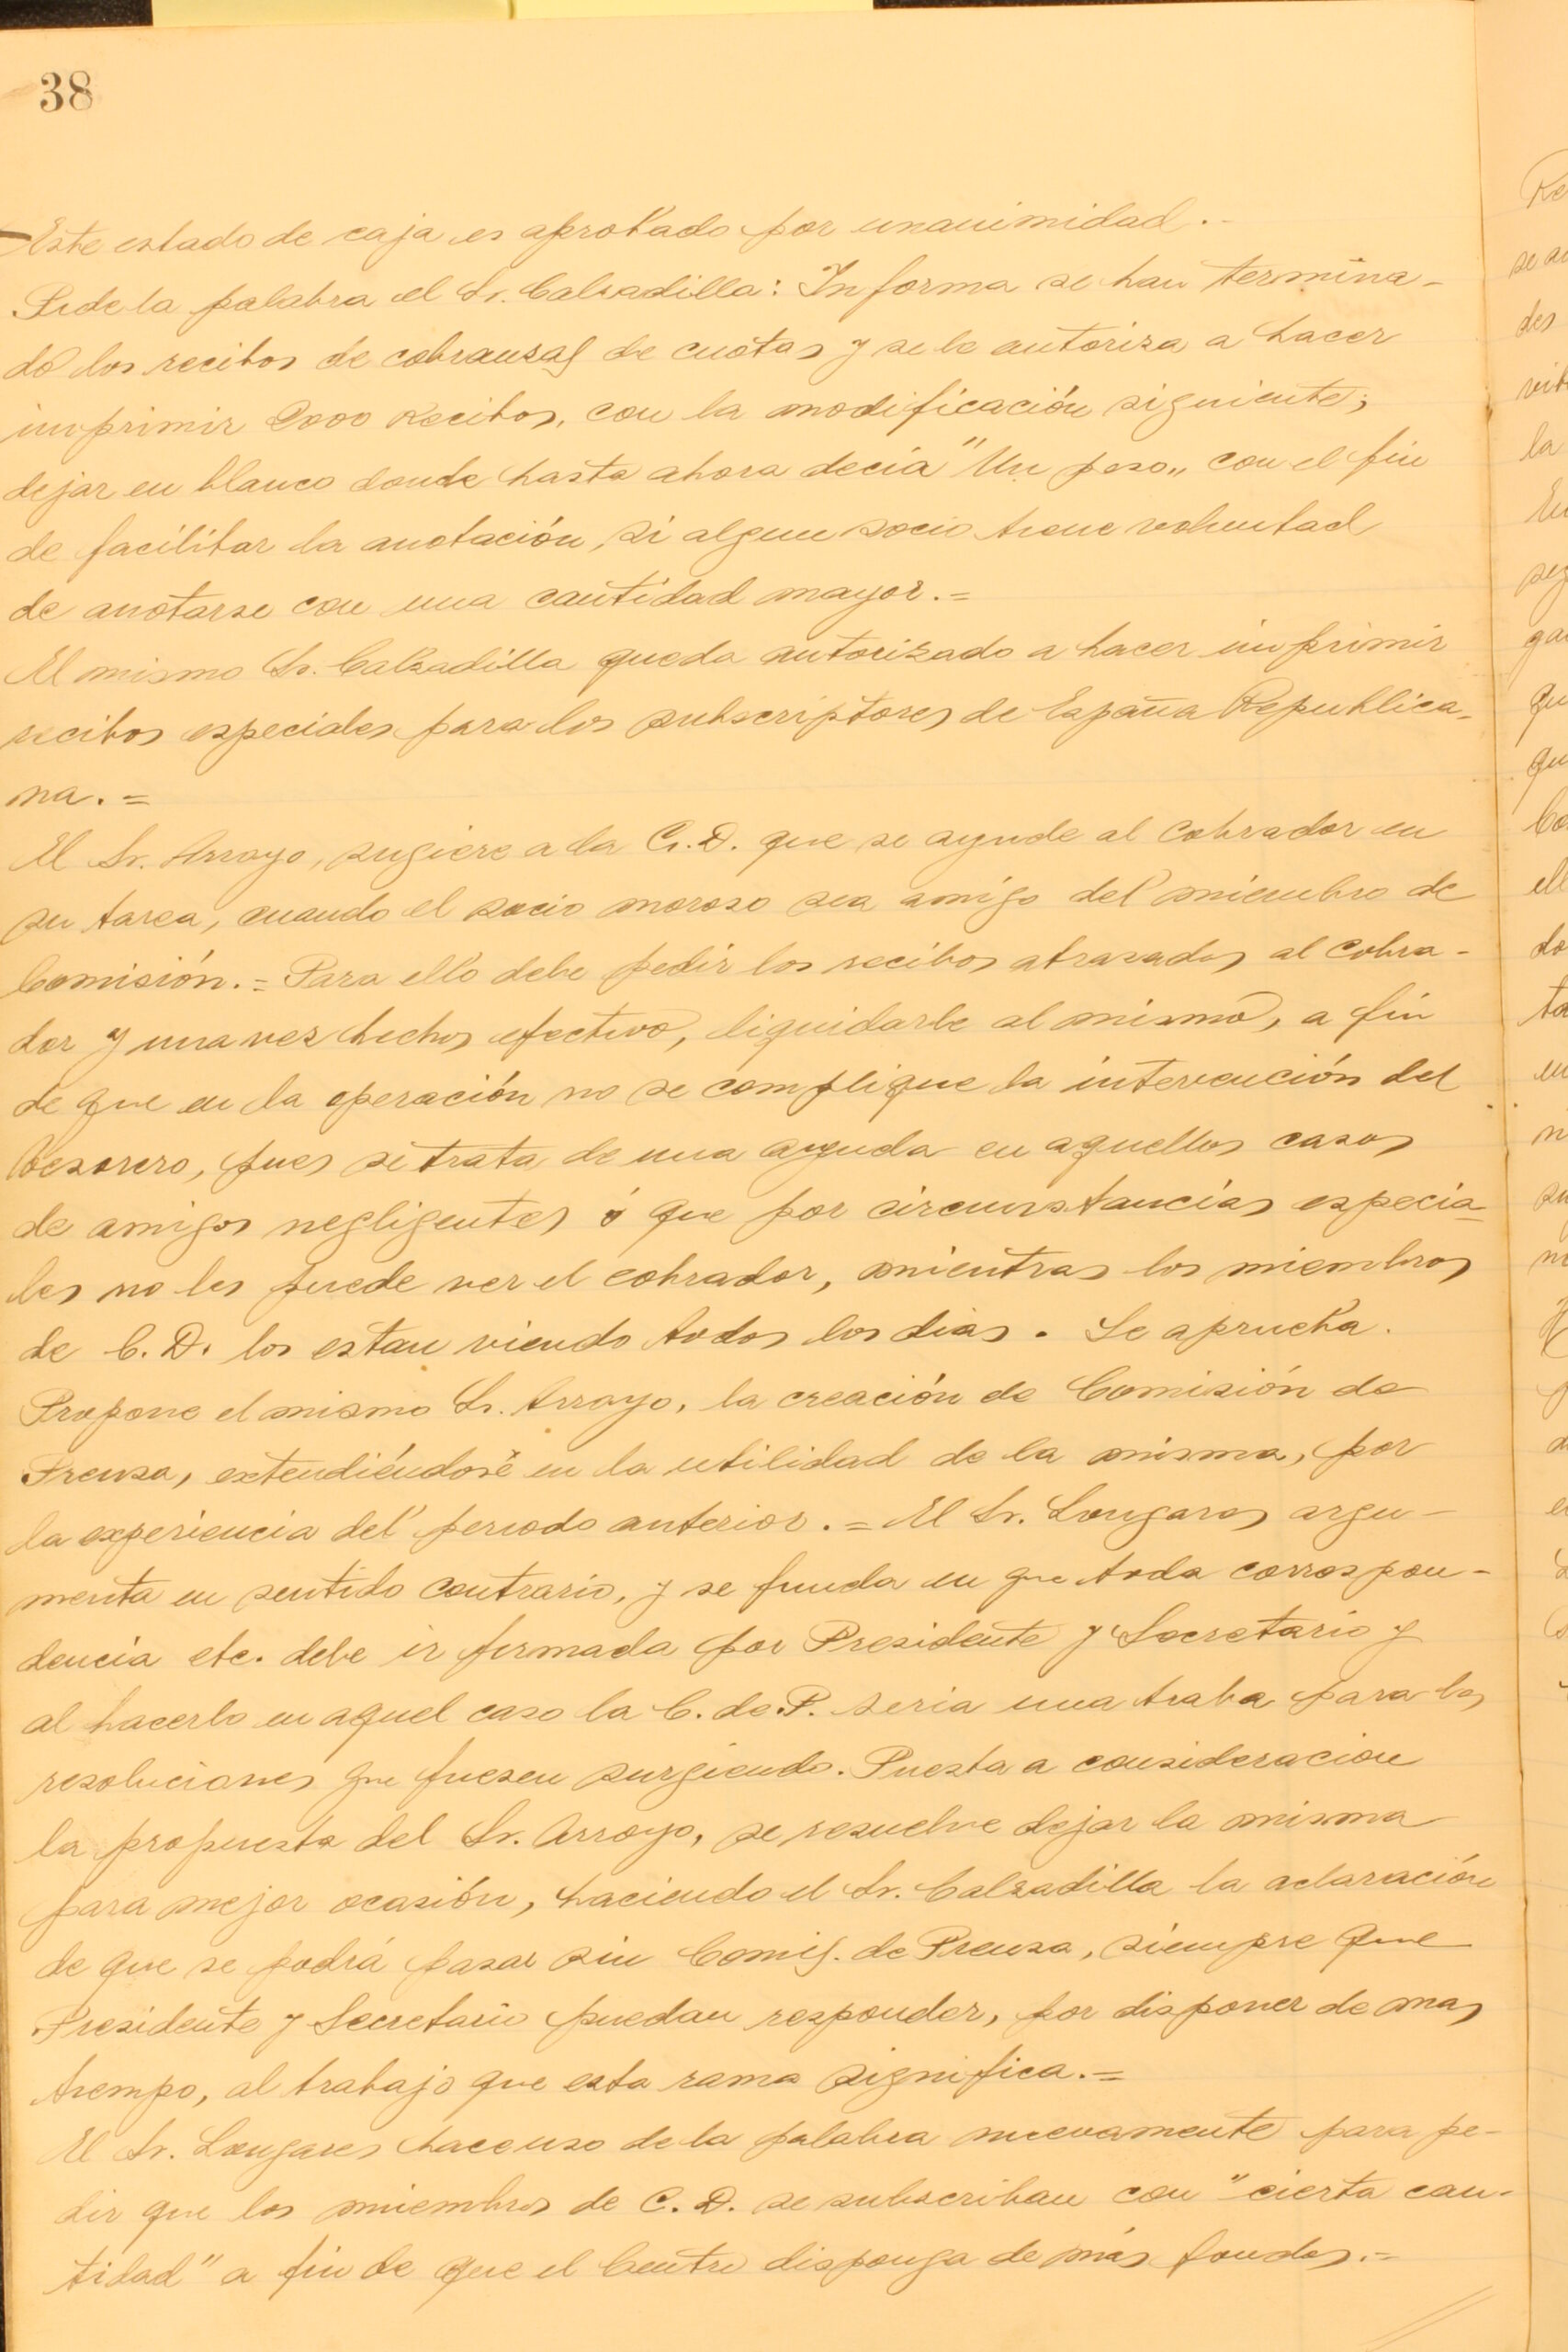 38
Este estado de caja es aprobado por unanimidad.-
Pide la palabra el Sr. Calzadilla: Informa se han termina-
do los recibos de cobranzas de cuotas y se le autoriza a hacer
imprimir 2000 Recibos, con la modificación siguiente;
dejar en blanco donde hasta ahora decía "Un peso" con el fin
de facilitar la anotación, si algun socio tiene voluntad
de anotarse con una cantidad mayor.=
El mismo Sr. Calzadilla queda autorizado a hacer imprimir
recibos especiales para los subscriptores de España Republica-
na.=
El Sr. Arroyo, sugiere a la C.D. que se ayude al cobrador en
su tarea, cuando el socio moroso sea amigo del miembro de
Comisión.= Para ello debe pedir los recibos atrasados al cobra-
dor y una vez hechos efectivo, liquidarle al mismo, a fin
de que en la operación no se complique la intervención del
Tesorero, pues se trata de una ayuda en aquellos casos
de amigos negligentes ó que por circunstancias especia-
les no les puede ver el cobrador, mientras los miembros
de C.D. los estan viendo todos los dias. Se aprueba.
Propone el mismo Sr. Arroyo, la creación de Comisión de
Prensa, extendiéndose en la utilidad de la misma, por
la experiencia del periodo anterior.= El Sr. Longares argu-
menta en sentido contrario, y se funda en que toda correspon-
dencia etc. debe ir firmada por Presidente y Secretario y
al hacerlo en aquel caso la C. de P. seria una traba para las
resoluciones que fuesen surgiendo. Puesta a consideracion
la propuesta del Sr. Arroyo, se resuelve dejar la misma
para mejor ocasión, haciendo el Sr. Calzadilla la aclaración
de que se podrá pasar sin Comis. de Prensa, siempre que
Presidente y Secretario puedan responder, por disponer de mas
tiempo, al trabajo que esta rama significa.=
El Sr. Longares hace uso de la palabra nuevamente para pe-
dir que los miembros de C.D. se subscriban con "cierta can-
tidad" a fin de que el Centro disponga de más fondos.=